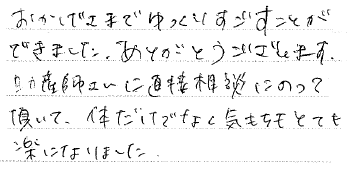 おかげさまでゆっくりすごすことが
できました。ありがとうございます。
助産師さんに直接相談にのって
頂いて、体だけでなく気もちもとても
楽になりました。